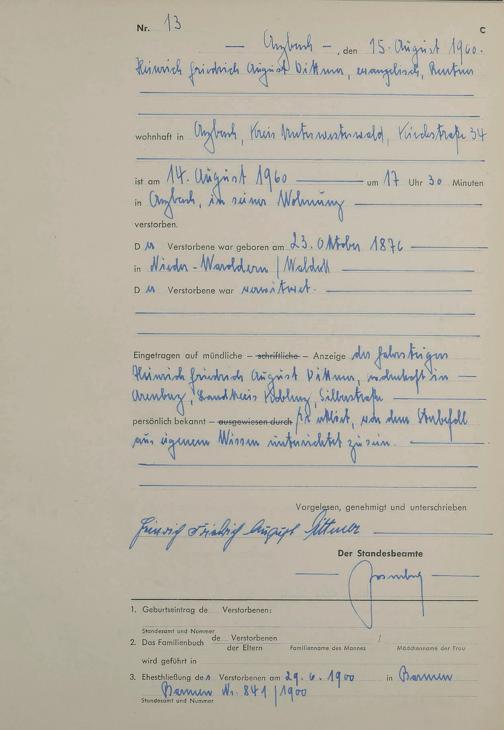 Nr. 13 C
— Arzbach —, den 15. August 1960.
Heinrich Friedrich August Dittmer, evangelisch, Rentner
wohnhaft in Arzbach, Kreis Unterwesterwald, Kirchstraße 34
ist am 14. August 1960 um 17 Uhr 30 Minuten
in Arzbach, in seiner Wohnung
verstorben.
D er Verstorbene war geboren am 23. Oktober 1876
in Nieder-Waroldern / Waldeck
D er Verstorbene war verwitwet.
Eingetragen auf mündliche – schriftliche – Anzeige des Fahrsteigers
Heinrich Friedrich August Dittmer, wohnhaft in
Arenberg, Landkreis Koblenz, Silberstraße
persönlich bekannt – ausgewiesen durch / Er erklärt, von dem Sterbefall
aus eigenem Wissen unterrichtet zu sein.
Vorgelesen, genehmigt und unterschrieben
Heinrich Friedrich August Dittmer
Der Standesbeamte
1. Geburtseintrag de Verstorbenen:
Standesamt und Nummer
2. Das Familienbuch de Verstorbenen /
der Eltern Familienname des Mannes Mädchenname der Frau
wird geführt in
3. Eheschließung des Verstorbenen am 29. 6. 1900 in Barmen
Barmen Nr. 841/1900
Standesamt und Nummer